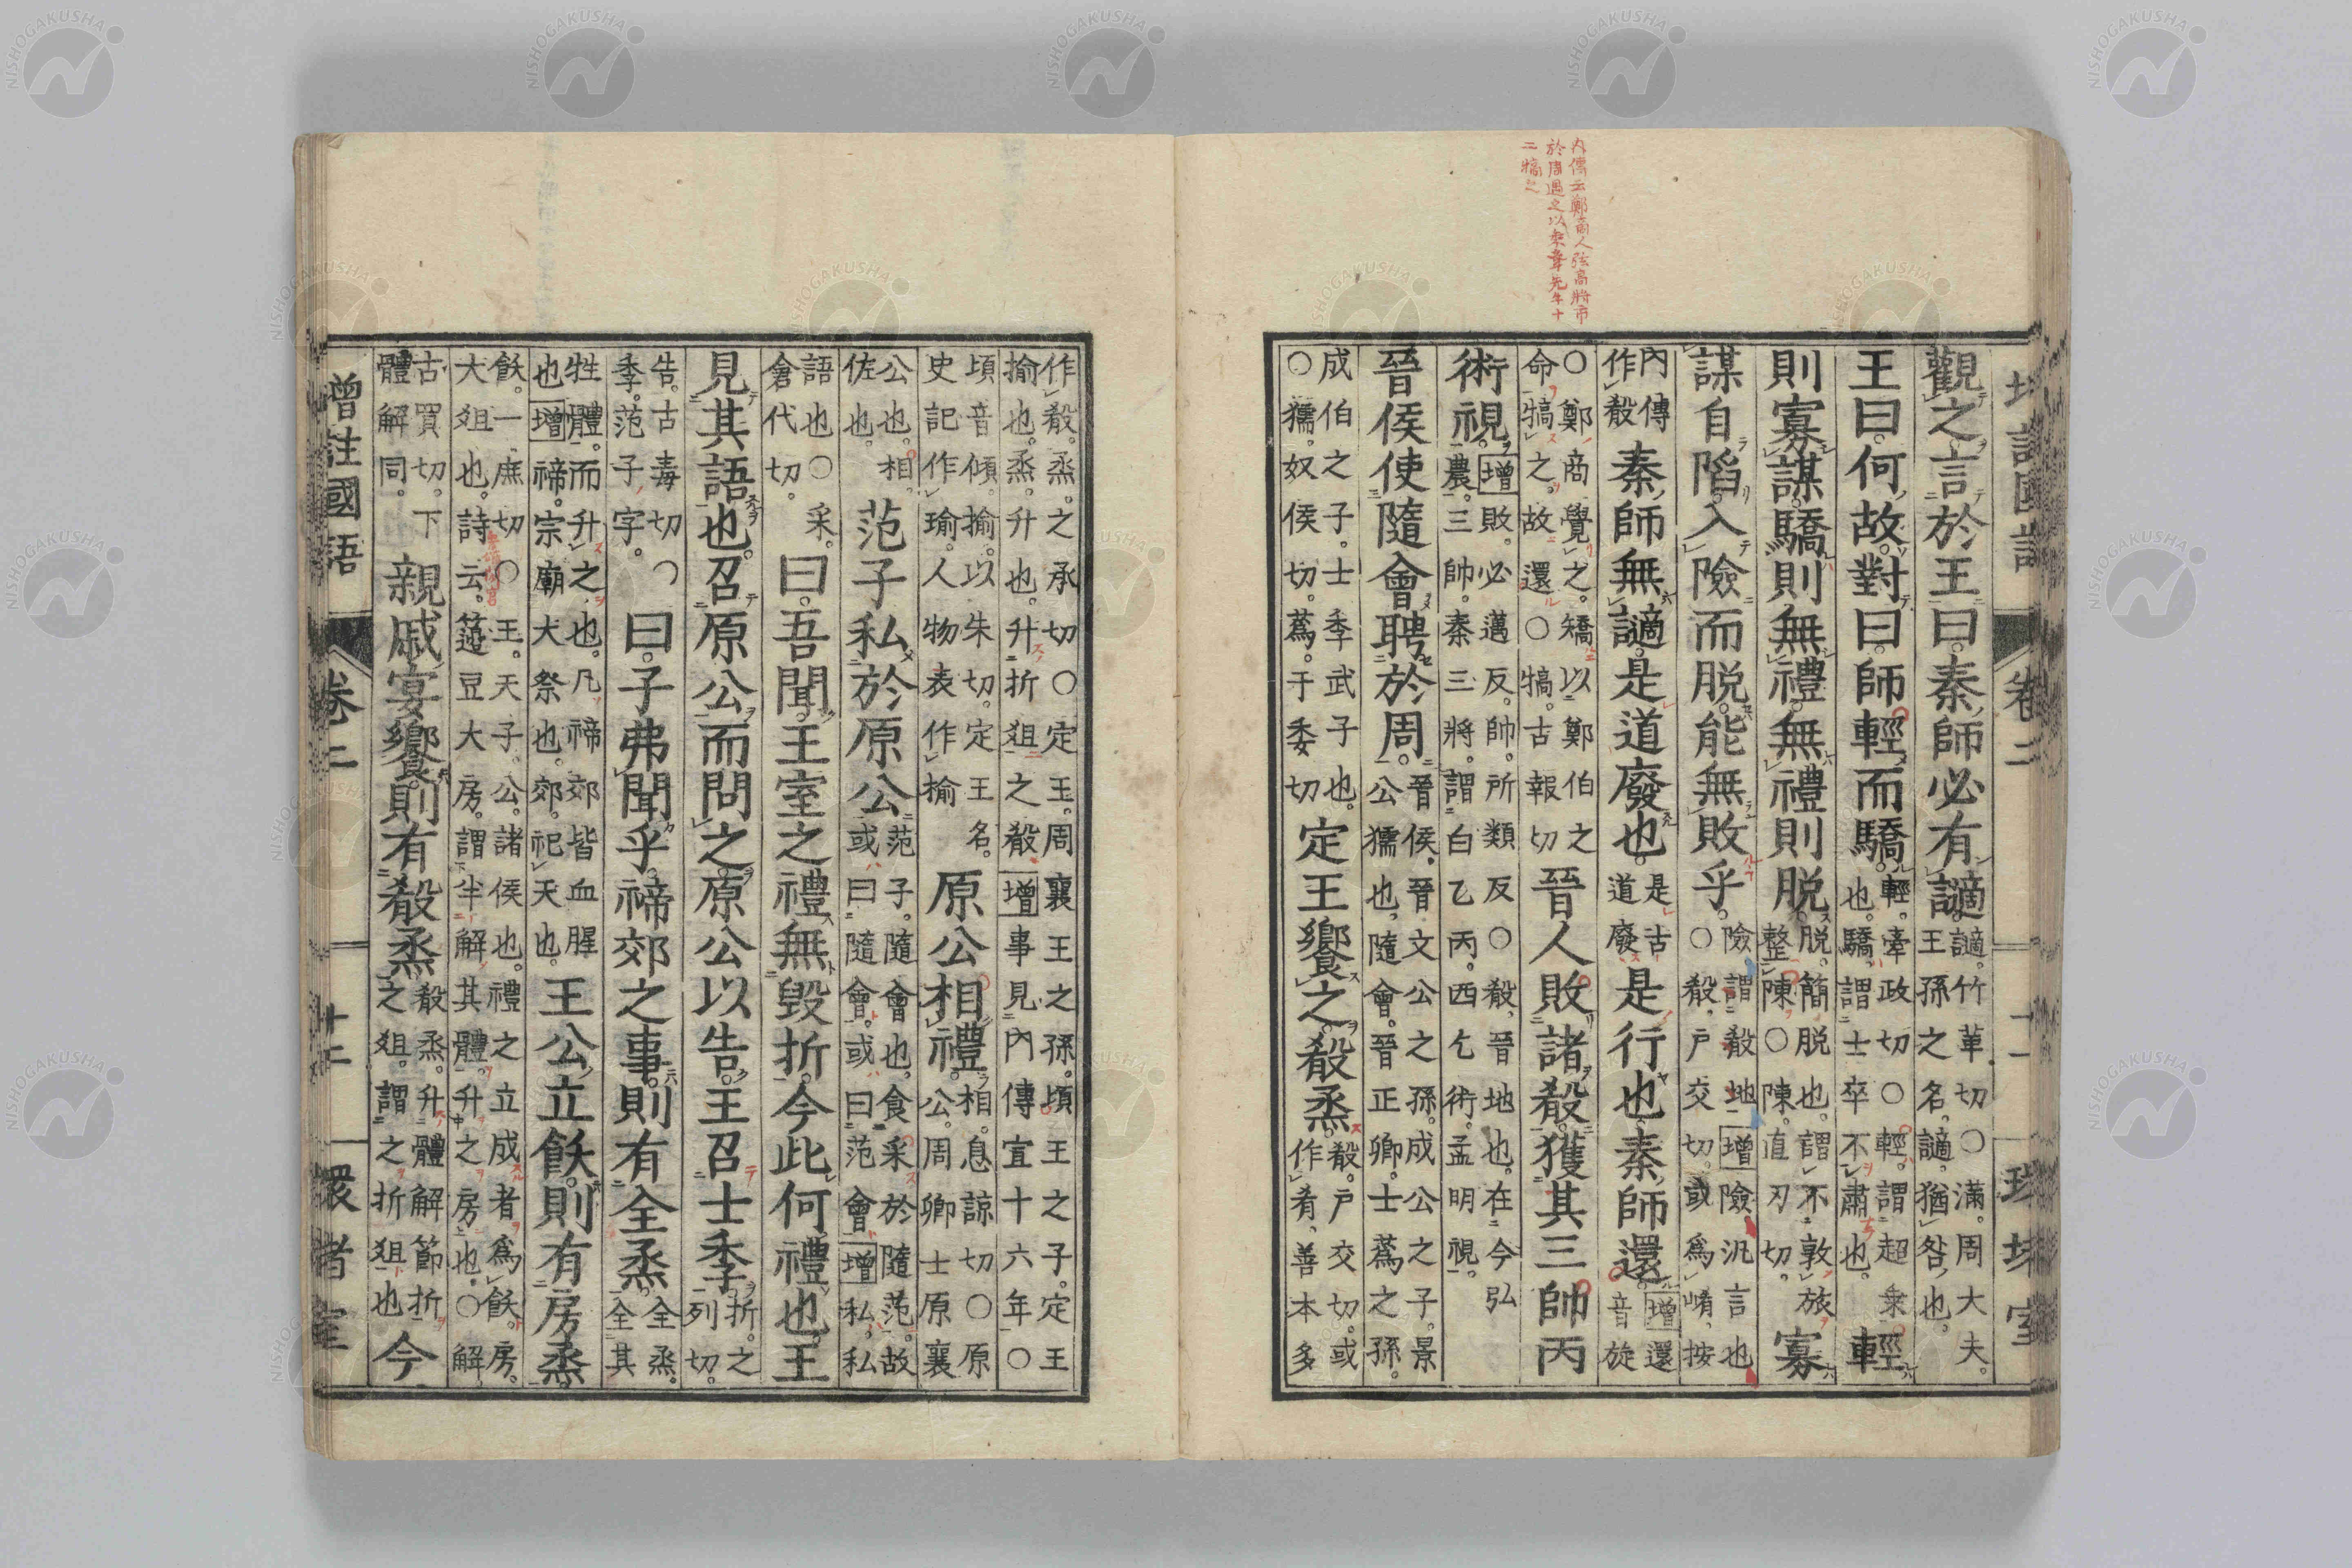 内傳云鄭商人弦高將市
於周遇之以乘韋先牛十
二犒之
觀之言於王曰秦師必有謫謫竹革切○滿周大夫王孫之名謫猶咎也
王曰何故對曰師輕而驕輕牽政切○輕謂超乘也驕謂士卒不肅也輕
則寡謀驕則無禮無禮則脱脱簡脱也謂不敦旅整陳○陳直刃切寡
謀自陷入險而脱能無敗乎險謂殽地○殽戶交切或爲崤增險汎言也按
內傳作殽秦師無謫是道廢也是古道廢是行也秦師還增還音旋
○鄭商覺之矯以鄭伯之命犒之故還○犒古報切晉人敗諸殽獲其三帥丙
術視增敗必邁反帥所類反○殽晉地也在今弘農三帥秦三將謂白乙丙西乞術孟明視
晉侯使隨會聘於周晉侯晉文公之孫成公之子景公獳也隨會晉正卿士蔿之孫
成伯之子士季武子也○獳奴侯切蔿于委切定王饗之殽烝殽戶交切或作肴善本多
作殽烝之承切○定王周襄王之孫頃王之子定王揄也烝升也升折俎之殽增事見內傳宣十六年○
頃音傾揄以朱切定王名史記作瑜人物表作揄原公相禮相息諒切○原公周卿士原襄
公也相佐也范子私於原公范子隨會也食采於隨范故或曰隨會或曰范會增私私
語也○采倉代切曰吾聞王室之禮無毀折今此何禮也王
見其語也召原公而問之原公以告王召士季折之列切
告古毒切○季范子字曰子弗聞乎禘郊之事則有全烝全烝全其
牲體而升之也凡禘郊皆血腥也增禘宗廟大祭也郊祀天也王公立飫則有房烝
飫一庶切○王天子公諸侯也禮之立成者爲飫房大俎也詩云籩豆大房謂半解其體升之房也○解
古買切下體解同親戚宴饗則有殽烝殽烝升體解節折之俎謂之折俎也今
增註國語
卷二
十二